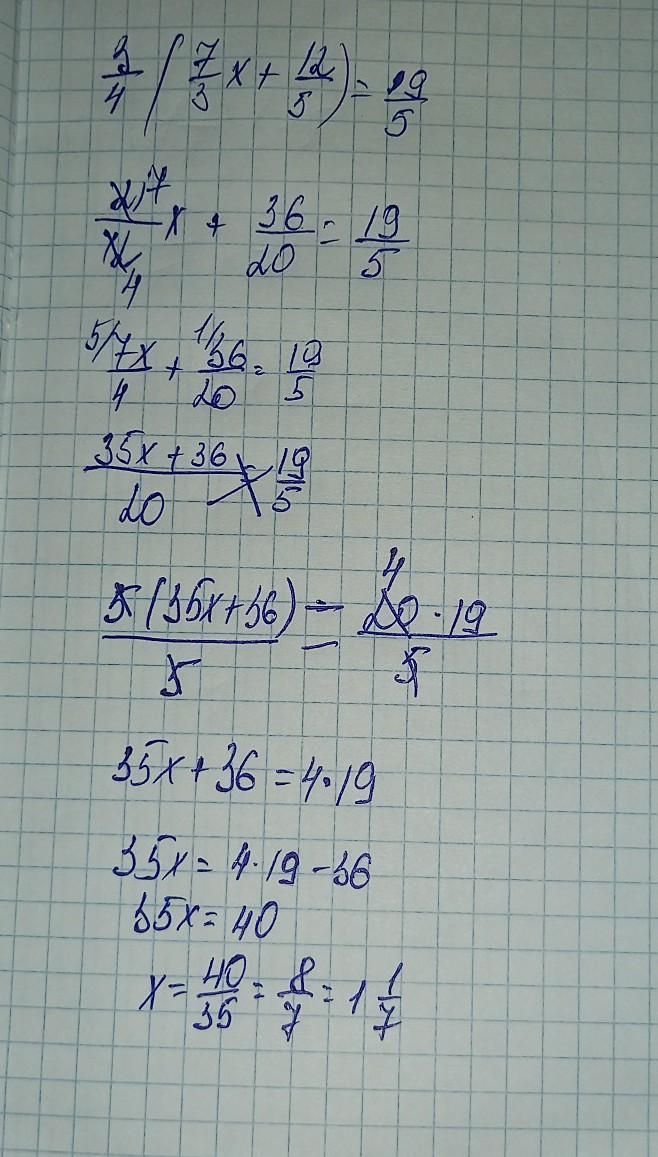 3/4 (7/3 x + 12/5) = 19/5
21 7/12 4 x + 36/20 = 19/5
5/ 7x/4 + 1/ 36/20 = 19/5
35x + 36/20 = 19/5
5(35x+36)/5 = 4 20 · 19/5
35x + 36 = 4 · 19
35x = 4 · 19 - 36
35x = 40
x = 40/35 = 8/7 = 1 1/7